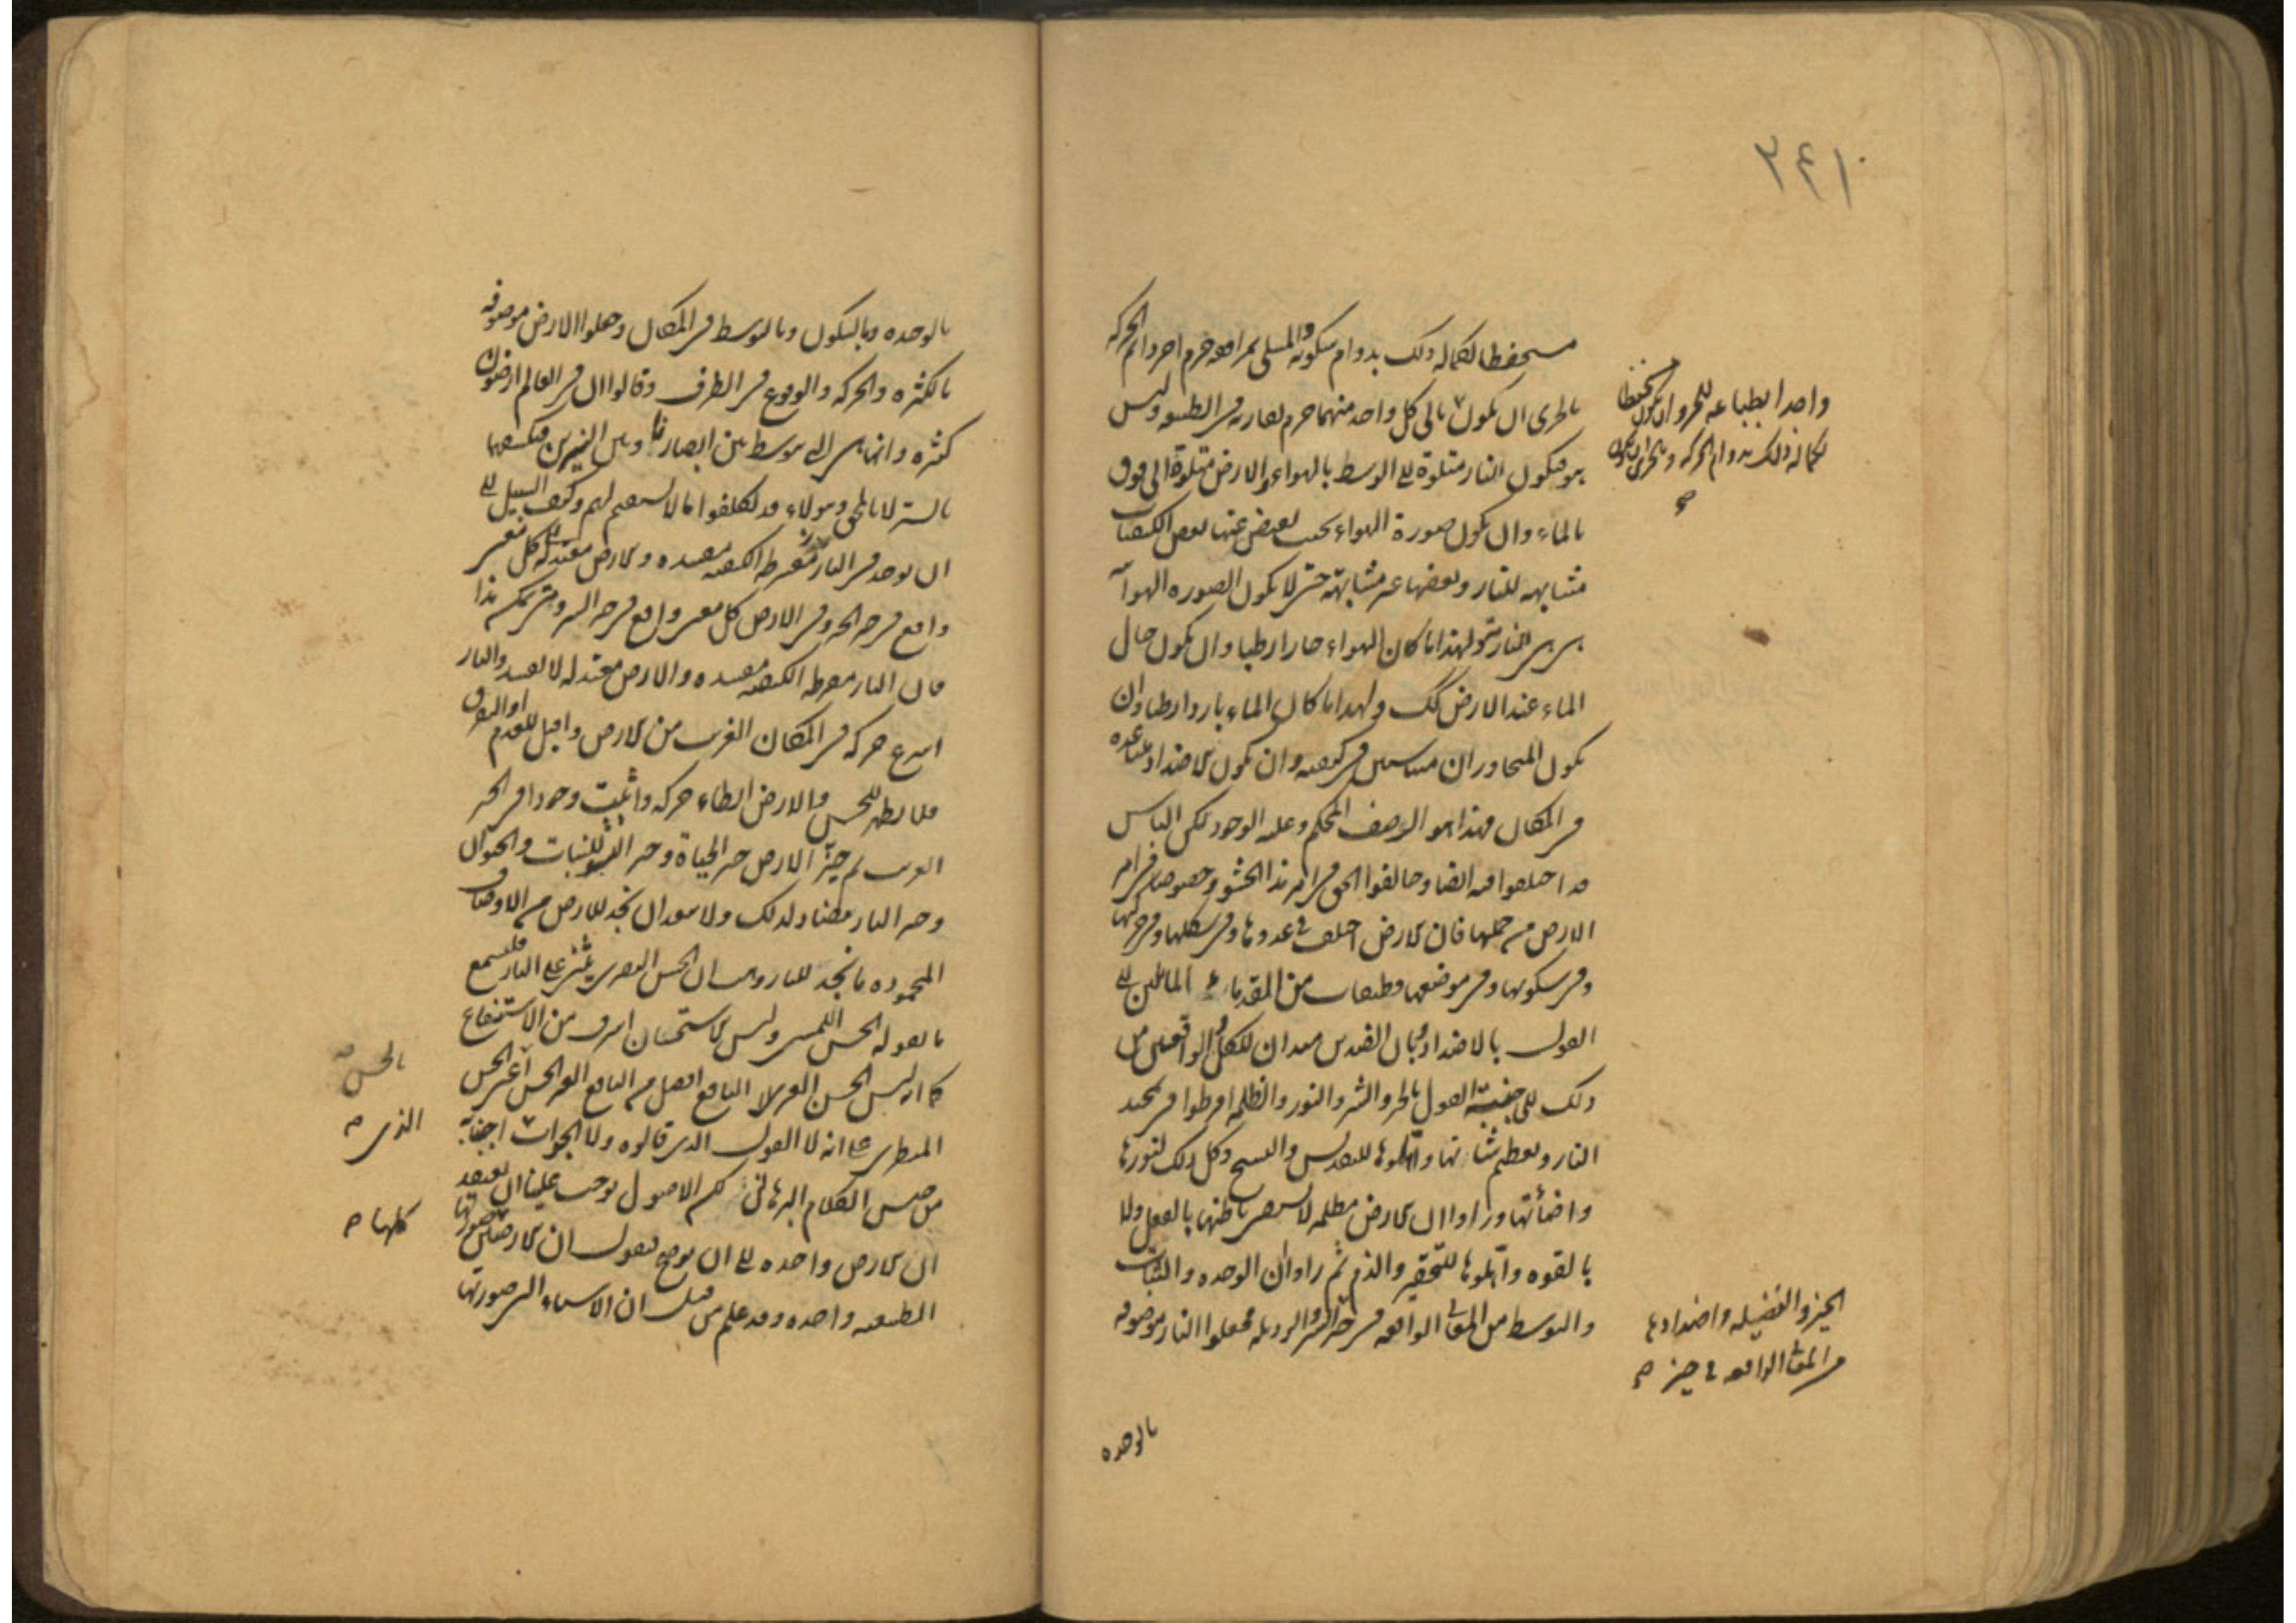 ٣٤١
مستحفظا لكماله ذلك بدوام سكونه والمستملى جرم اخر دائم الحركة
بالحرى ان يكون تالى كل واحد منهما جرم يقاربه فى الطبيعه وليس
هو فيكون النار متلوة الى الوسط بالهواء والارض متلوة الى فوق
بالماء وان يكون صورة الهواء بحيث يفيض عنها بعض الكيفيات
مشابهه للنار وبعضها غير مشابهة حتى لا يكون الصوره الهوائية
هى هى النارية ولهذا ما كان الهواء حارا رطبا وان يكون حال
الماء عند الارض كك ولهذا ما كان الماء باردا رطبا وان
يكون المتجاوران متناسبين فى كيفيه وان يكون الاضداد متباعده
فى المكان فهذا هو الوصف المحكم وعليه الوجود لكن الناس
قد اختلفوا فيه ايضا وخالفوا الحق فى امر هذا الحشو وخصوصا فى امر
الارض من جملتها فان الارض اختلف فى عددها وفى شكلها وفى حركتها
وفى سكونها وفى موضعها وطبقات من القدماء المائلين الى
القول بالاضداد وبان الضدين مبدان للكل والواقعين من
ذلك الى جنبة القول بالخير والشر والنور والظلمه افرطوا فى تمجيد
النار وتعظيم شانها واهلوها للتقديس والتسبيح وكل ذلك لنورها
واضائتها وراوا ان الارض مظلمه لا يستضى باطنها بالفعل ولا
بالقوه واهلوها للتحقير والذم ثم راوا ان الوحده والثبات
والتوسط من المعانى الواقعه فى حيز الشر والرديله فجعلوا النار موصوفه
واحدا بطباعه للحرو ان يكون مستحفظا
لكماله ذلك بدوام الحركه وبالحرى ان يكون
صح
الخير والفضيله واضدادها
من المعانى الواقعه فى حيز صح
بالوحده
بالوحده وبالسكون وبالتوسط فى المكان وجعلوا الارض موصوفه
بالكثره والحركه والوقوع فى الطرف وقالوا ان فى العالم ارضون
كثيره وانها هى التى يتوسط بين ابصارنا وبين النيرين فتكسفهما
بالستر لا بالمحق وهولاء قد تكلفوا ما لا يستقيم لهم وكيف السبيل الى
ان يوجد فى النار مفرطه الكيفيه مفسده والارض معتدله كل معنى
واقع فى جهة الخير وفى الارض كل معنى واقع فى جهة الشر ومتى يمكنه هذا
فان النار مفرطه الكيفيه مفسده والارض معتدله لا تفسد والنار
اسرع حركه فى المكان الغريب من الارض واقبل للعدم او التفرق
فلا يظهر للحس والارض ابطاء حركه واثبت وجودا فى الحيز
الغريب ثم حيز الارض حيز الحياة وحيز النشو للنبات والحيوان
وحيز النار مضاد لذلك ولا يبعد ان نجد للارض من الاوصاف
المحموده ما نجد للنار وهب ان الحس البصرى يثنى على النار فليسمع
ما يقوله الحس اللمسى وليس الاستحسان اشرف من الاستنفاع
كما انه ليس الحسن الغير النافع افضل من النافع الغير الحسن اعنى الحسن
المنظرى على انه لا القول الذى قالوه ولا الجواب اجبنا به
من جنس الكلام البرهانى لكن الاصول توجب علينا ان نعتقد
ان الارض واحده الى ان نوضح فنقول ان الارضين صورتها
الطبيعيه واحده وقد علم من قبل ان الاشياء التى صورتها
بالحس صح
الذى صح
كلها صح